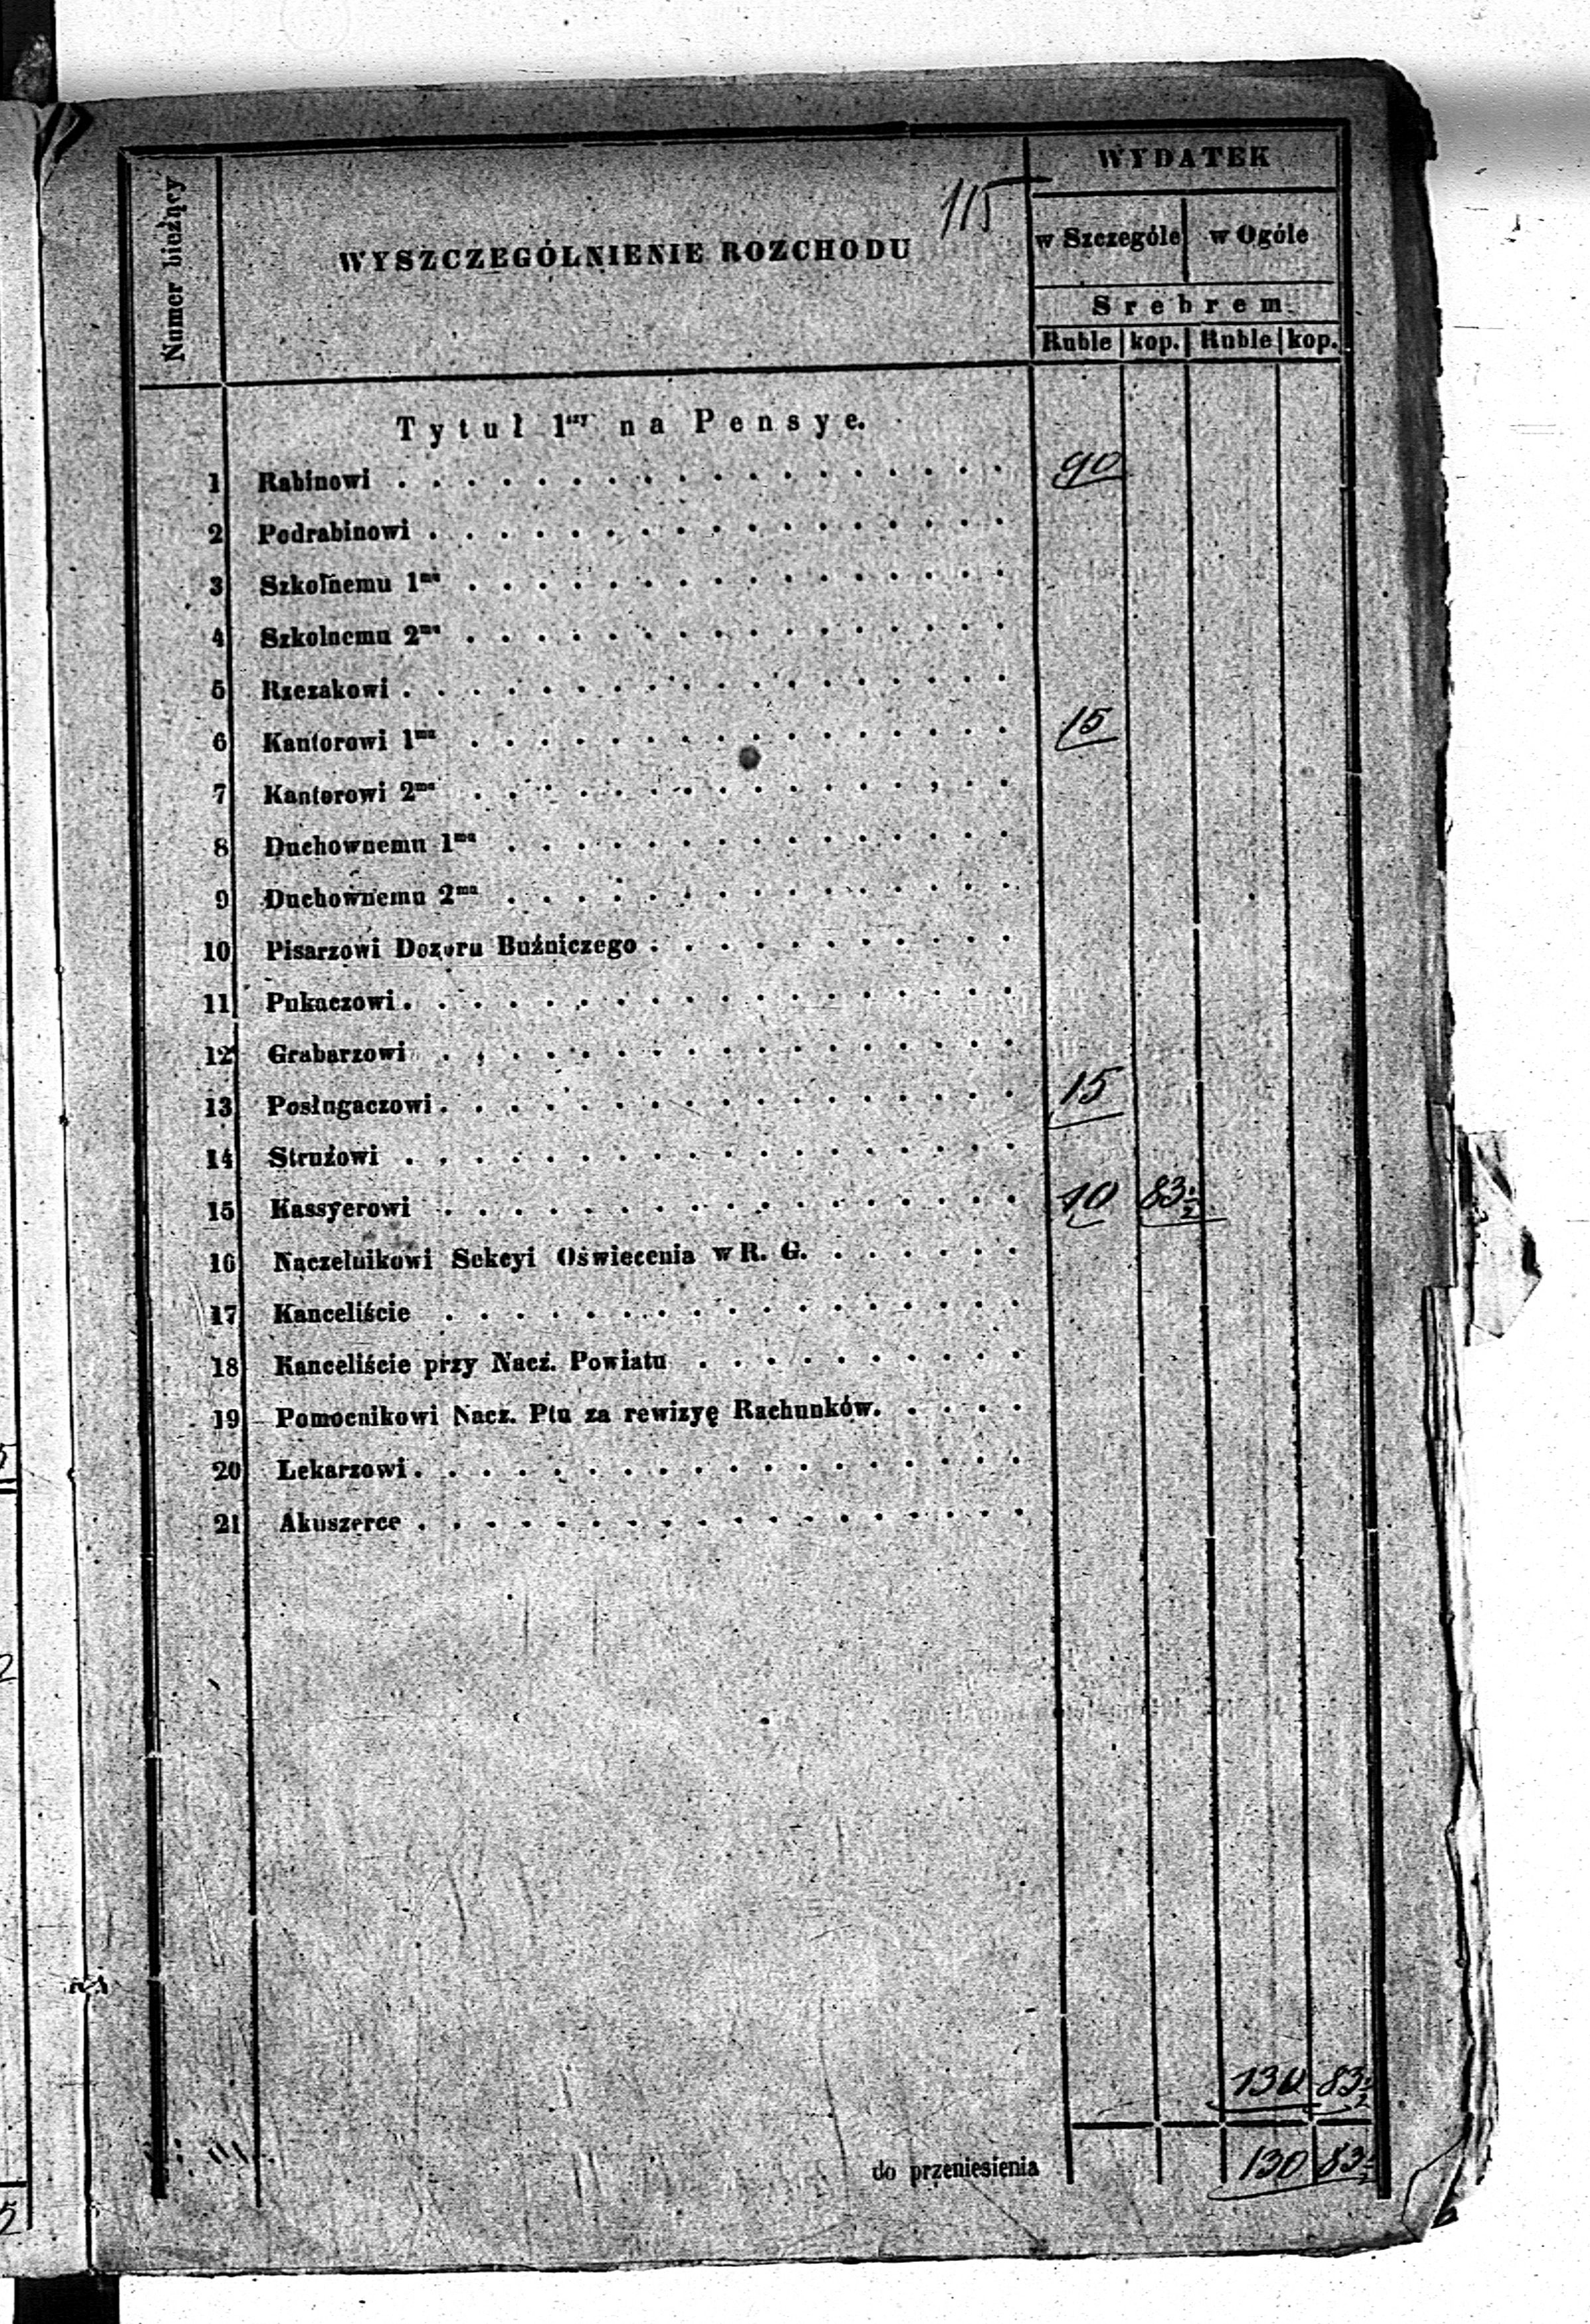 115
WYDATEK
Numer bieżący
WYSZCZEGÓLNIENIE ROZCHODU
w Szczególe w Ogóle
Srebrem
Ruble kop. Ruble kop.
Tytuł 1szy na Pensye.
1 Rabinowi 90
2 Podrabinowi
3 Szkolnemu 1mu
4 Szkolnemu 2mu
5 Rzezakowi
6 Kantorowi 1mu 15
7 Kantorowi 2mu
8 Duchownemu 1mu
9 Duchownemu 2mu
10 Pisarzowi Dozoru Bużniczego
11 Pukaczowi
12 Grabarzowi
13 Posługaczowi 15
14 Strużowi
15 Kassyerowi 10 83½
16 Naczelnikowi Sekcyi Oświecenia w R. G.
17 Kanceliście
18 Kanceliście przy Nacz. Powiatu
19 Pomocnikowi Nacz. Ptu za rewizyę Rachunków.
20 Lekarzowi
21 Akuszerce
130 83½
do przeniesienia 130 83½